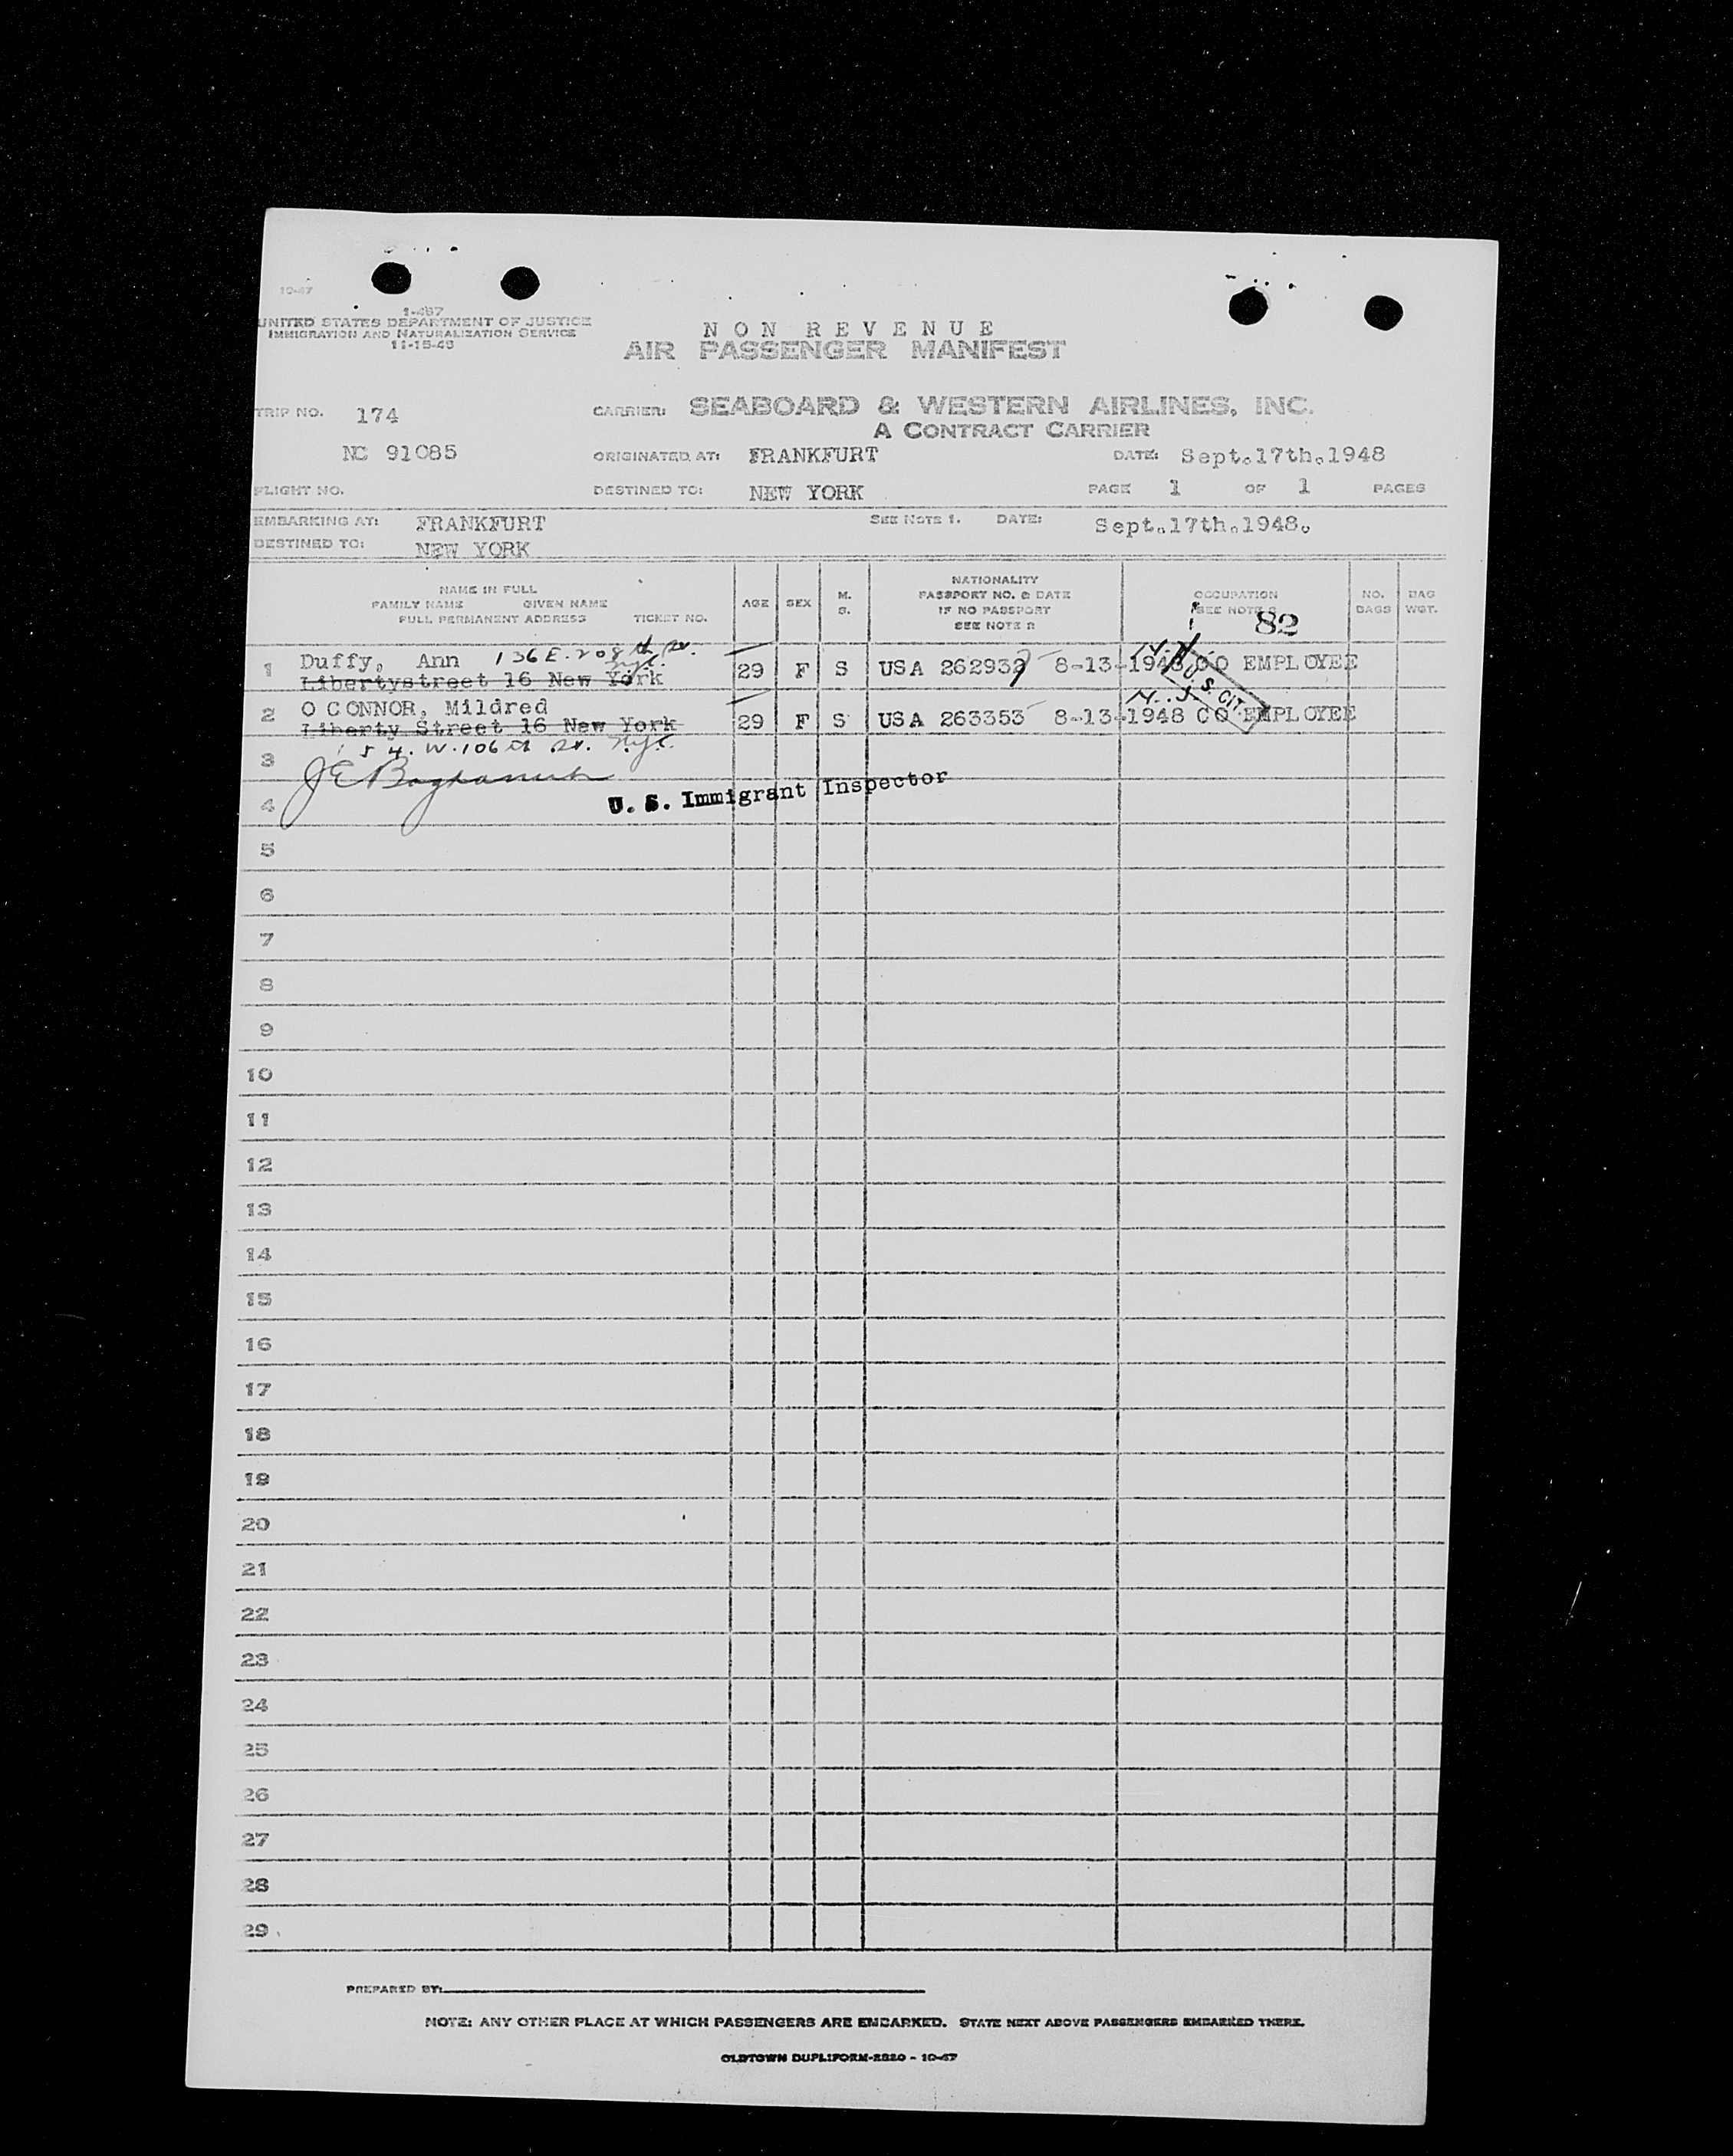 10-47
I-467
UNITED STATES DEPARTMENT OF JUSTICE
IMMIGRATION AND NATURALIZATION SERVICE
NON REVENUE
AIR PASSENGER MANIFEST
TRIP NO. 174
CARRIER: SEABOARD & WESTERN AIRLINES, INC.
A CONTRACT CARRIER
NC 91085
ORIGINATED AT: FRANKFURT
DATE: Sept.17th.1948
FLIGHT NO.
DESTINED TO: NEW YORK
PAGE 1 OF 1 PAGES
EMBARKING AT: FRANKFURT
SEE NOTE 1. DATE: Sept.17th.1948.
DESTINED TO: NEW YORK
NAME IN FULL
FAMILY NAME GIVEN NAME
FULL PERMANENT ADDRESS TICKET NO.
AGE
SEX
M.
S.
NATIONALITY
PASSPORT NO. & DATE
IF NO PASSPORT
SEE NOTE 2
OCCUPATION
SEE NOTE
82
NO.
BAGS
BAG
WGT.
1 Duffy, Ann 136 E. 208th St. NYC.
Libertystreet 16 New York
29 F S USA 262932 8-13-1948 CO EMPLOYEE
U. S. CIT.
2 O CONNOR, Mildred
Liberty Street 16 New York
29 F S USA 263353 8-13-1948 CO EMPLOYEE
154 W. 106th St. NYC.
3
4
U. S. Immigrant Inspector
5
6
7
8
9
10
11
12
13
14
15
16
17
18
19
20
21
22
23
24
25
26
27
28
29
PREPARED BY:
NOTE: ANY OTHER PLACE AT WHICH PASSENGERS ARE EMBARKED. STATE NEXT ABOVE PASSENGERS EMBARKED THERE.
OLDTOWN DUPLIFORM-2820 - 10-47